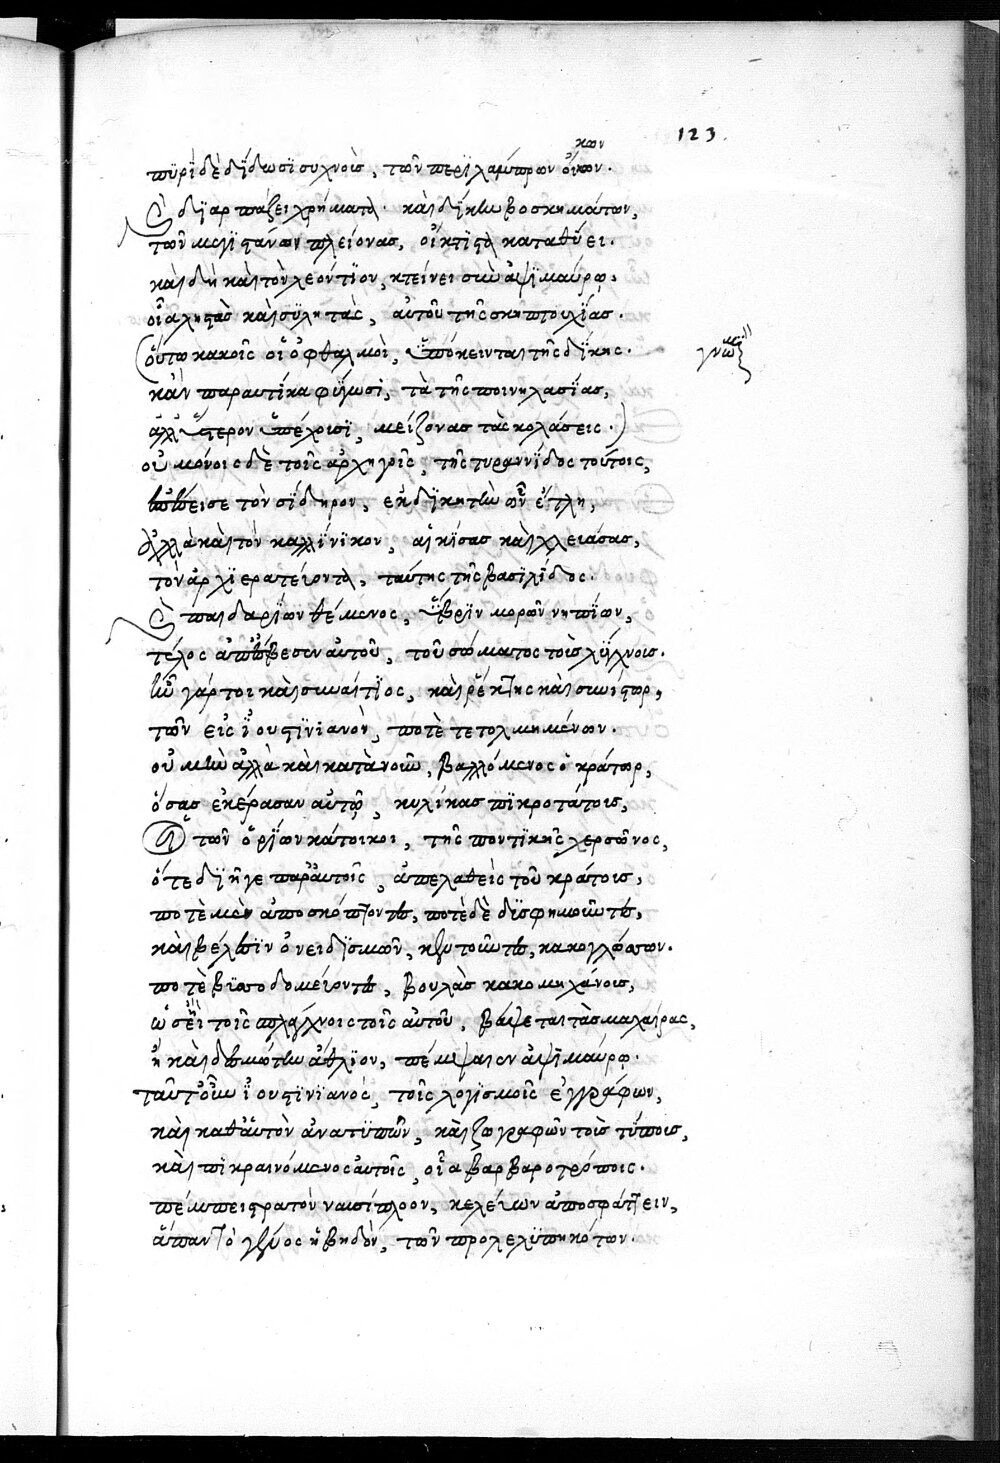 123
κων
πϋρὶ δὲ δίδωσϊ συχνοὺς, τῶν περϊλάμπρων οἴκων.
διαρπάζει χρήματα. καὶ δίκην βοσκημάτων,
τῶν μεγϊστάνων πλείονας, οἴκτιστα καταθύει.
καὶ δὴ καὶ τὸν λεόντϊον, κτείνει σὺν ἀψϊμάρῳ,
οἷα λῃστὰς καὶ σϋλητὰς, αὐτοῦ τῆς σκηπτουχίας.
(οὕτω κακοῖς οἱ ὀφθαλμοὶ, ὑπόκεινται τῆς δίκης.
γνώμη
κἂν παραυτίκα φύγωσι, τὰ τῆς ποινηλασίας,
ἀλλ' ὕστερον ὑπέχουσϊ, μείζονας τὰς κολάσεις.)
οὐ μόνοις δὲ τοῖς ἀρχηγοῖς, τῆς τυραννίδος τούτοις,
ἐπέσεισε τὸν σίδηρον, ἐκδίκησιν ὧν ἔτλη,
ἀλλὰ καὶ τὸν καλλίνϊκον, αἰκίσας καὶ χλευάσας,
τὸν ἀρχϊερατεύοντα, ταύτης τῆς βασϊλίδος.
παιδαρίων θέμενος, ὕβρϊν μορῶν νηπίων,
τέλος ἀπέσβεσεν αὐτοῦ, τοῦ σώματος τοὺς λύχνους.
ἦν γάρ τοι καὶ συναίτϊος, καὶ ῥέκτης καὶ συνίστωρ,
τῶν εἰς ἰουστϊνϊανὸν, ποτὲ τετολμημένων.
οὐ μὴν ἀλλὰ καὶ κατὰ νοῦν, βαλλόμενος ὁ κράτωρ,
ὅσας ἐκέρασαν αὐτῷ, κυλίκας πϊκροτάτους,
τῶν ὁρίων κάτοικοι, τῆς ποντϊκῆς χερσῶνος,
ὅτε δϊῆγε παρ' αὐτοῖς, ἀπελαθεὶς τοῦ κράτους,
ποτὲ μὲν ἀποσκώπτοντες, ποτὲ δὲ δϋσφημοῦντες,
καὶ βέλεσϊν ὀνειδϊσμῶν, κεντοῦντες, κακογλώσσων.
ποτὲ βϊαποδομεύοντες, βουλὰς κακομηχάνους,
ὡσεὶ τοῖς σπλάγχνοις τοῖς αὐτοῦ, βάψεται τὰς μαχαίρας,
ἢ καὶ δεσμώτην ἄθλϊον, πέμψαιεν ἀψϊμάρῳ.
ταῦτ' οὖν ἰουστϊνϊανὸς, τοῖς λογϊσμοῖς ἐγγράφων,
καὶ καθ' αὑτὸν ἀνατϋπῶν, καὶ ζωγραφῶν τοὺς τύπους,
καὶ πϊκραινόμενος αὐτοῖς, οἷα βαρβαροτρόποις.
πέμπει στρατὸν ναυσίπλοον, κελεύων ἀποσφάττειν,
ἅπαν τὸ γένος ἡβηδὸν, τῶν προλελϋπηκότων.